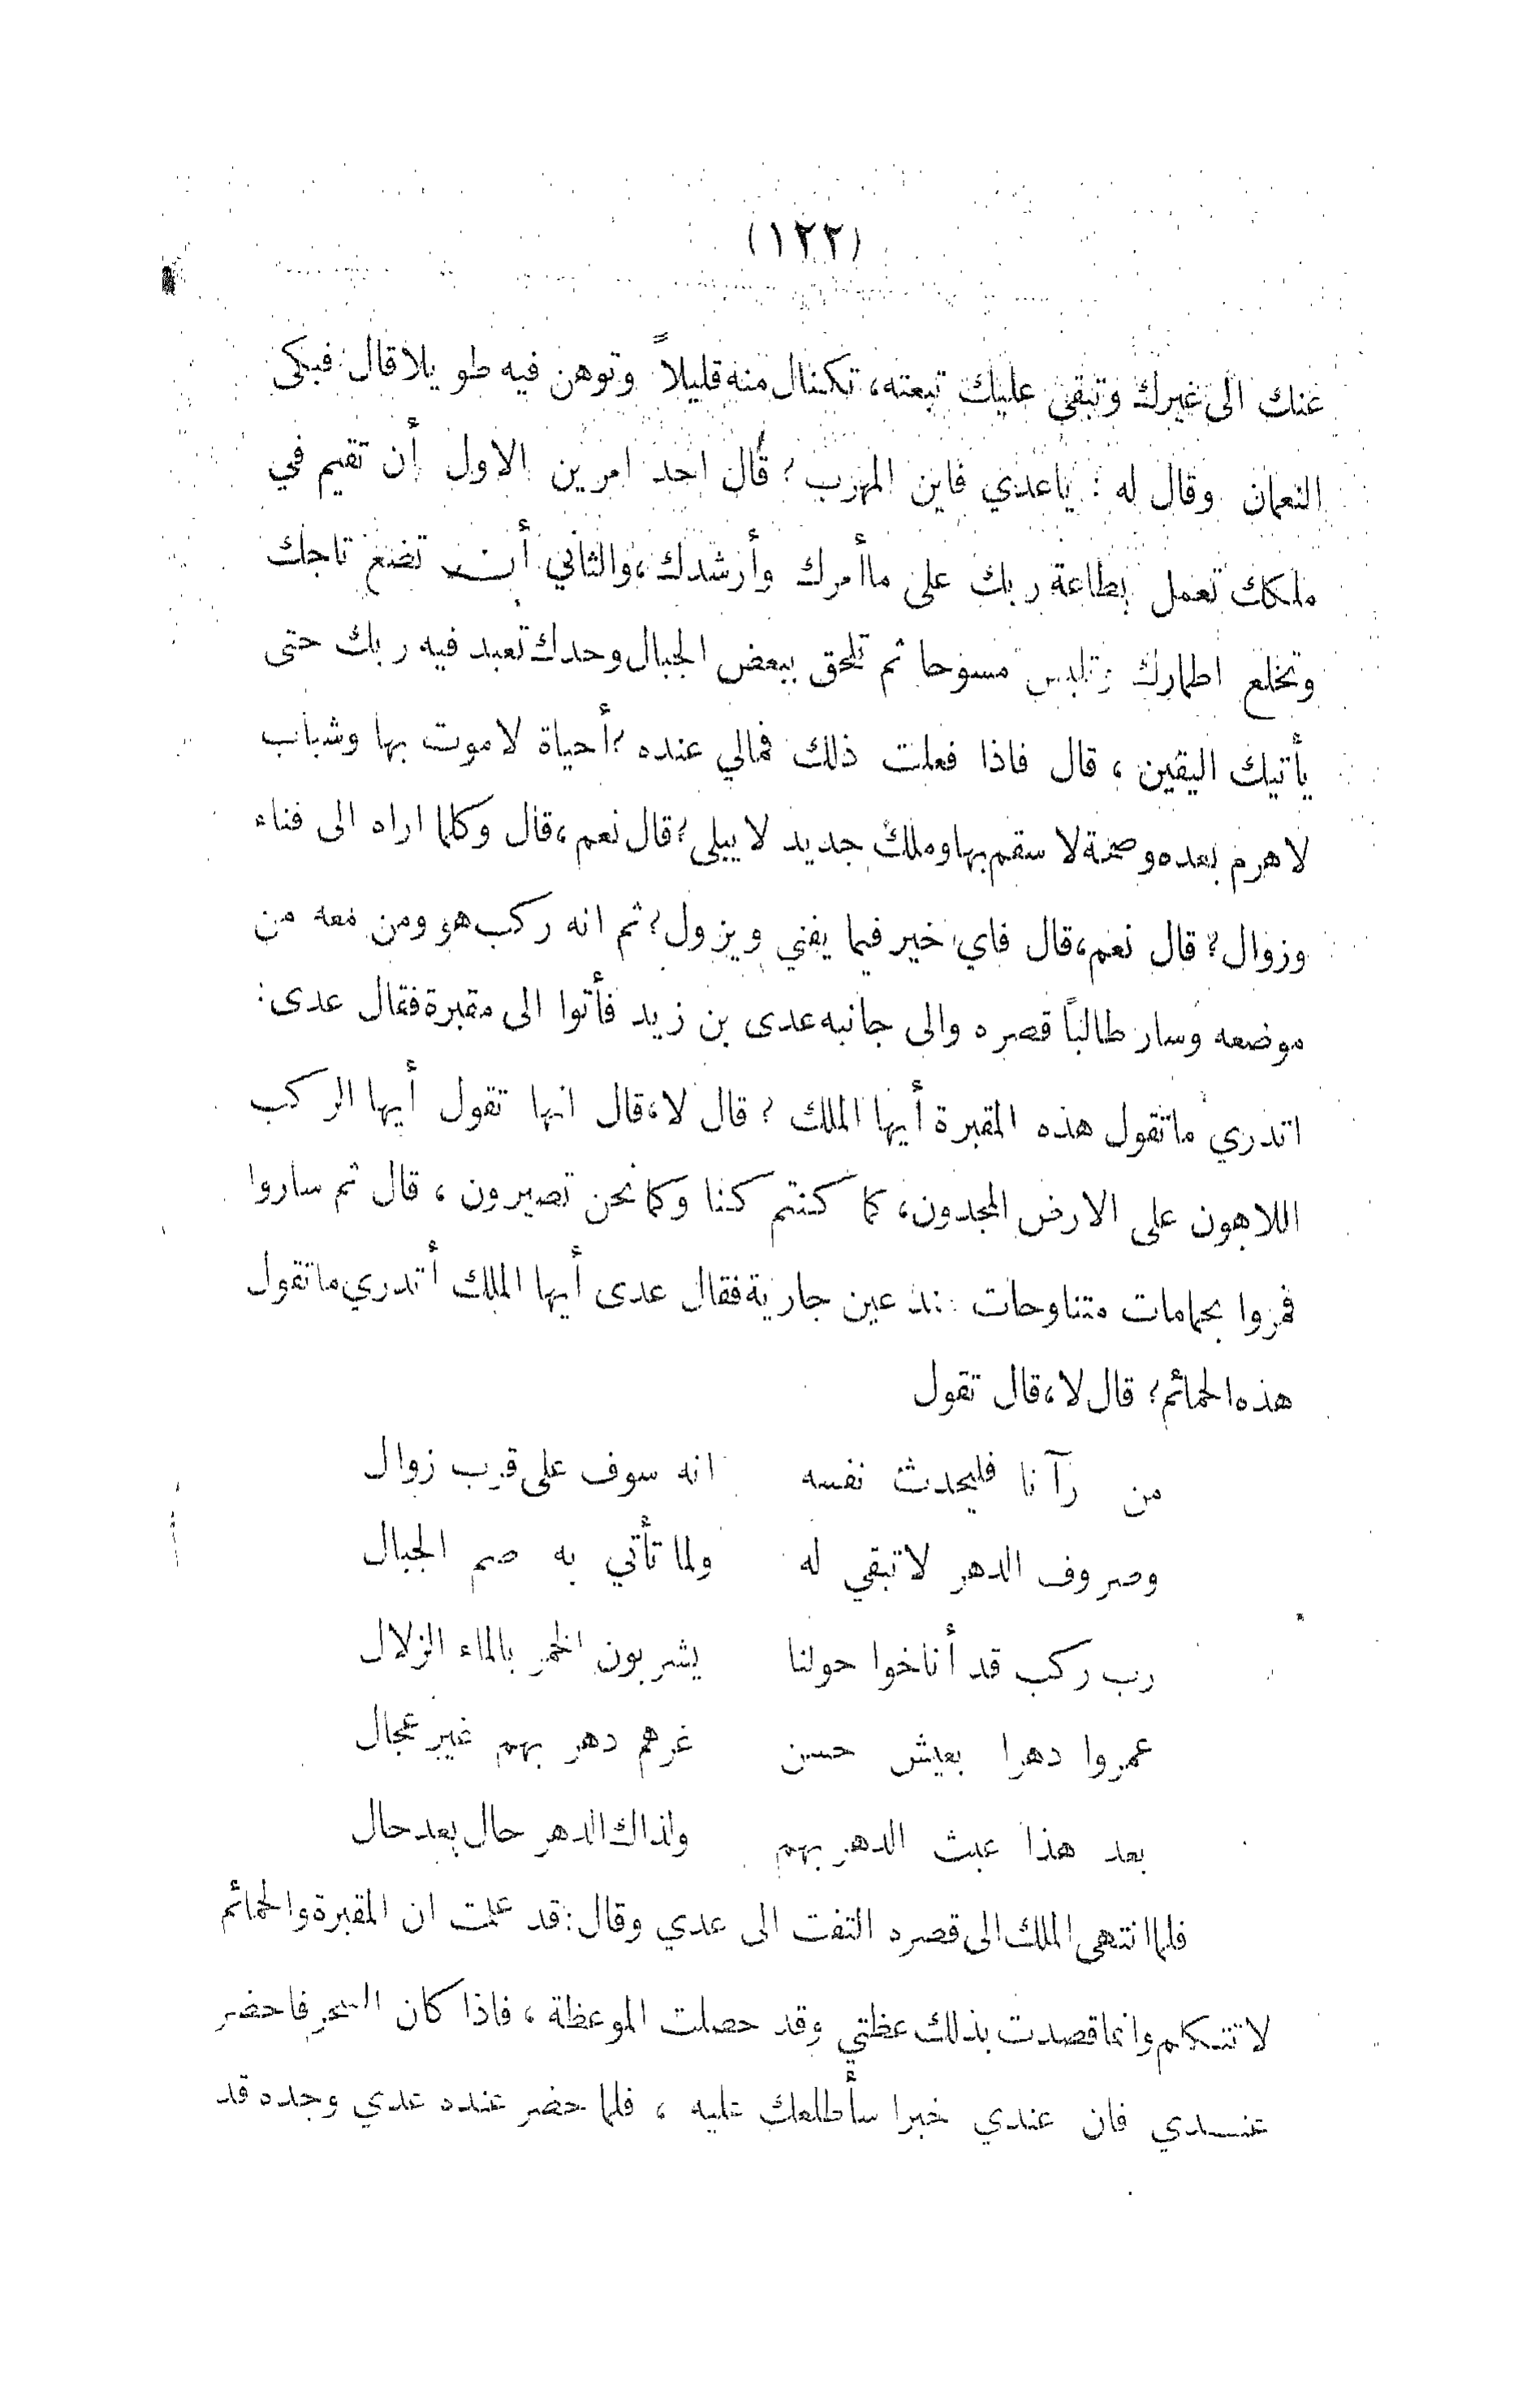 (١٢٢)
عنك الى غيرك وتبقى عليك تبعته، تكنال منه قليلاً وتوهن فيه طويلا قال فبكى
النعمان وقال له : ياعدي فاين المهرب ؟ قال احد امرين الاول أن تقيم في
ملكك تعمل بطاعة ربك على ماأمرك وأرشدك ،والثاني أن تضع تاجك
وتخلع اطمارك وتلبس مسوحا ثم تلحق ببعض الجبال وحدك تعبد فيه ربك حتى
يأتيك اليقين ، قال فاذا فعلت ذلك فمالي عنده ؟ أحياة لاموت بها وشباب
لا هرم بعده وصحة لا سقم بها وملك جديد لا يبلى ؟ قال نعم ،قال وكلما اراه الى فناء
وزوال ؟ قال نعم،قال فاي خير فيما يفني ويزول ؟ ثم انه ركب هو ومن معه من
موضعه وسار طالباً قصره والى جانبه عدى بن زيد فأتوا الى مقبرة فقال عدى :
اتدري ماتقول هذه المقبرة أيها الملك ؟ قال لا،قال انها تقول أيها الركب
اللاهون على الارض المجدون، كما كنتم كنا وكما نحن تصيرون ، قال ثم ساروا
فمروا بحمامات متناوحات عين جارية فقال عدى أيها الملك أتدري ماتقول
هذه الحمائم ؟ قال لا،قال تقول
من رآنا فليحدث نفسه انه سوف على قرب زوال
وصروف الدهر لاتبقي له ولما تأتي به صم الجبال
رب ركب قد أناخوا حولنا يشربون الخمر بالماء الزلال
عمروا دهرا بعيش حسن غرهم دهر بهم غير عجال
بعد هذا عبث الدهر بهم ولذاك الدهر حال بعد حال
فلما انتهى الملك الى قصره التفت الى عدي وقال : قد علمت ان المقبرة والحمائم
لا تتكلم وانما قصدت بذلك عظتي وقد حصلت الموعظة ، فاذا كان السحر فاحضر
عندي فان عندي خبرا سأطلعك عليه ، فلما حضر عنده عدي وجده قد